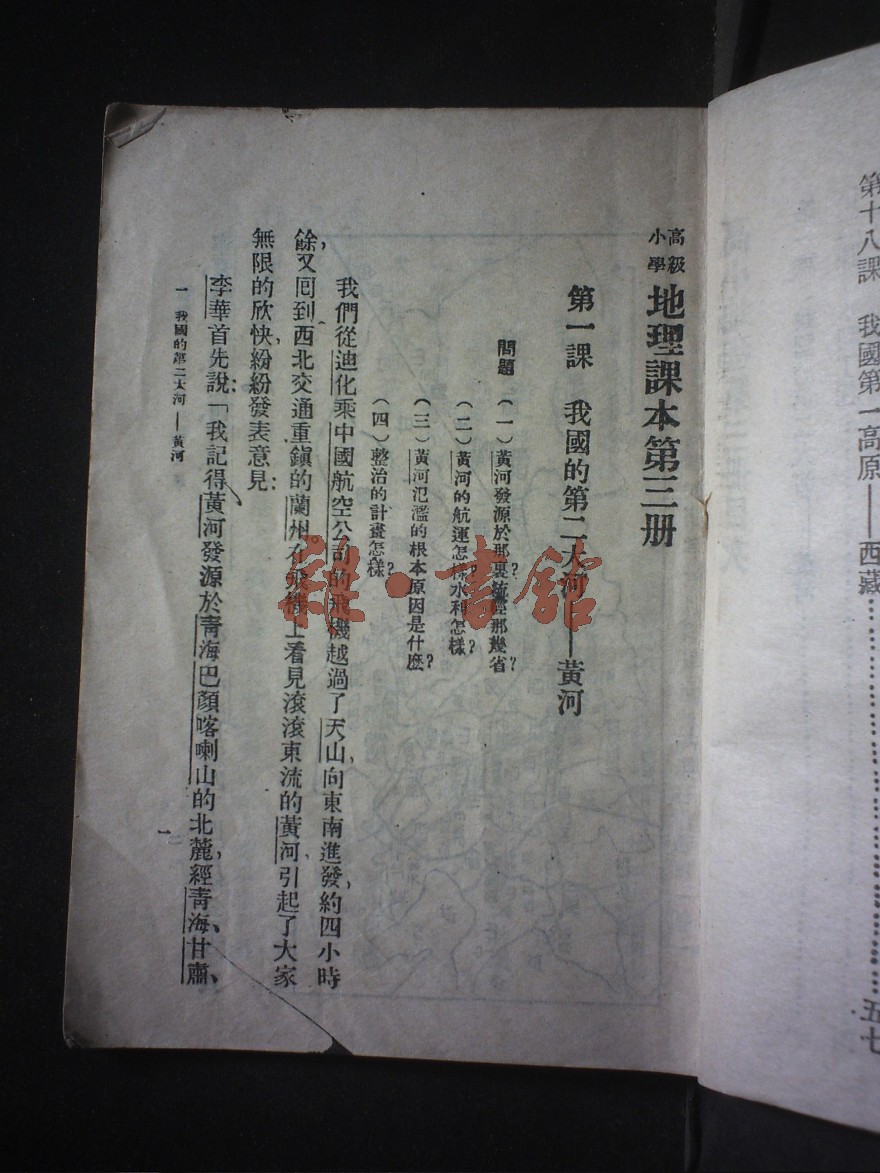 第十八課　我國第一高原——西藏……………………五七
高級小學 地理課本第三册
第一課　我國的第二大河——黃河
問題　(一)黃河發源於那裏?流經那幾省?
(二)黃河的航運怎樣?水利怎樣?
(三)黃河氾濫的根本原因是什麽?
(四)整治的計畫怎樣?
我們從迪化乘中國航空公司的飛機越過了天山,向東南進發,約四小時
餘,又囘到西北交通重鎮的蘭州。在飛機上看見滾滾東流的黃河,引起了大家
無限的欣快,紛紛發表意見:
李華首先說:「我記得黃河發源於青海巴顏喀喇山的北麓,經青海、甘肅、
一　我國的第二大河——黃河
一
雜·書館